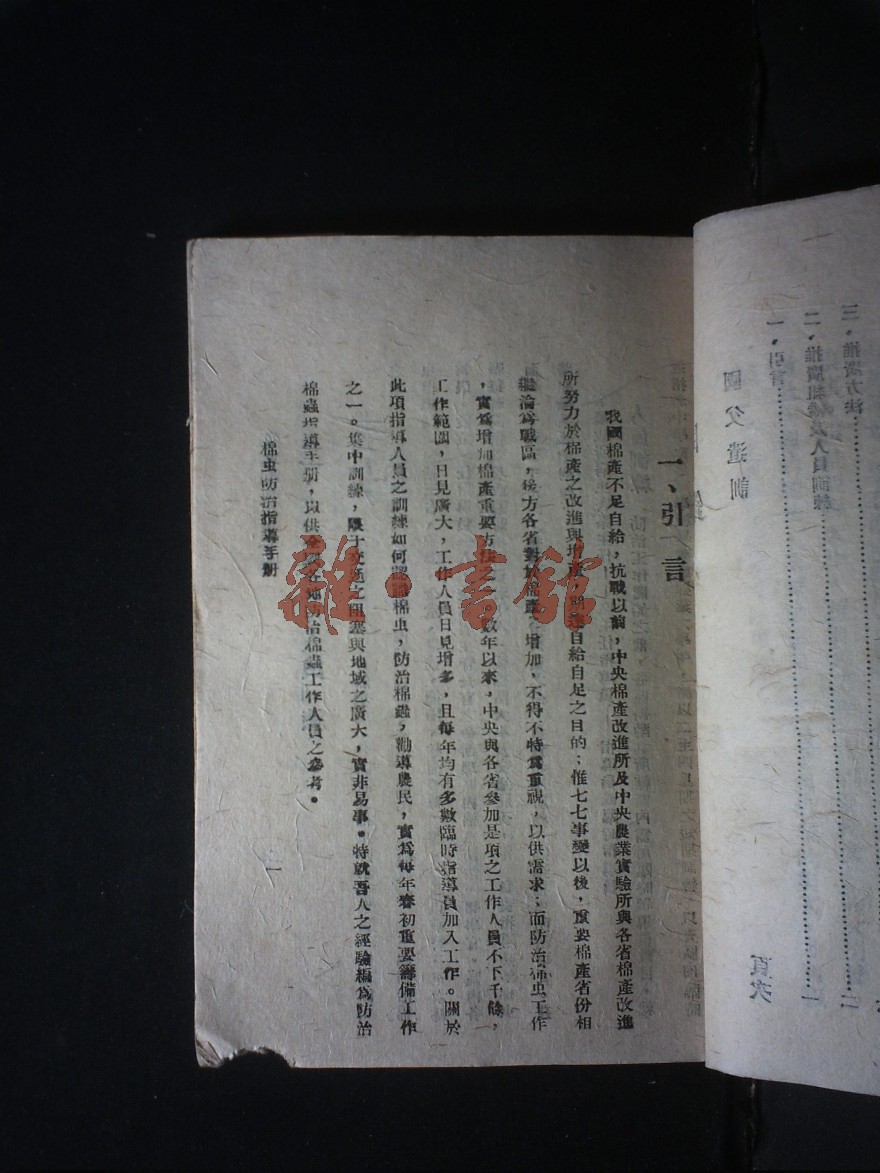 一、引言
我國棉產不足自給，抗戰以前，中央棉產改進所及中央農業實驗所與各省棉產改進
所努力於棉產之改進與增產，期達自給自足之目的；惟七七事變以後，重要棉產省份相
繼淪為戰區，後方各省對於棉產增加，不得不特為重視，以供需求；而防治棉虫工作
，實為增加棉產重要方法之一。數年以來，中央與各省參加是項之工作人員不下千餘，
工作範圍，日見廣大，工作人員日見增多，且每年均有多數臨時指導員加入工作。關於
此項指導人員之訓練如何認識棉虫，防治棉蟲，勸導農民，實為每年春初重要籌備工作
之一。集中訓練，限于交通之阻塞與地域之廣大，實非易事。特就吾人之經驗編為防治
棉蟲指導手册，以供全國各地防治棉蟲工作人員之參考。
棉虫防治指導手册
一
雜·書館
頁次
國父遺訓
一・引言 一
二・推廣組織及人員訓練 二
三・推廣方法